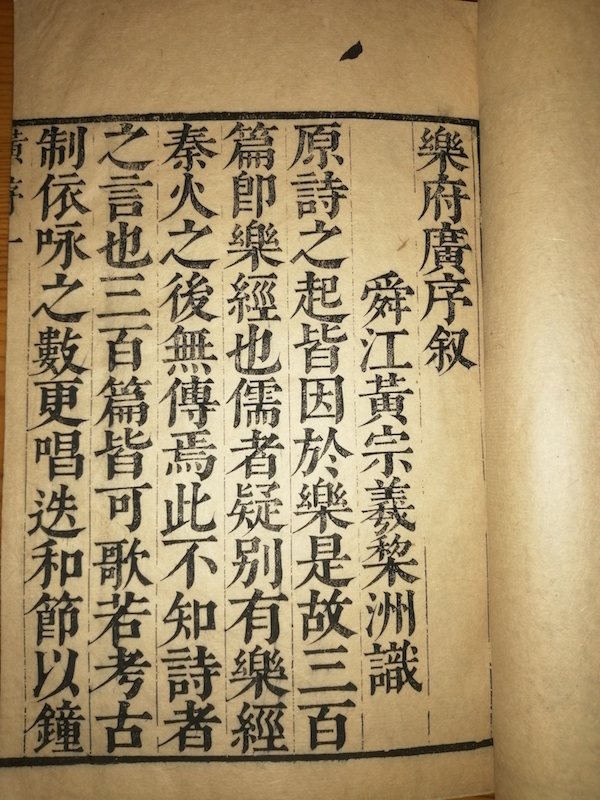 樂府廣序叙
舜江黃宗羲棃洲識
原詩之起皆因於樂是故三百
篇即樂經也儒者疑别有樂經
秦火之後無傳焉此不知詩者
之言也三百篇皆可歌若考古
制依咏之數更唱迭和節以鐘
黃序一